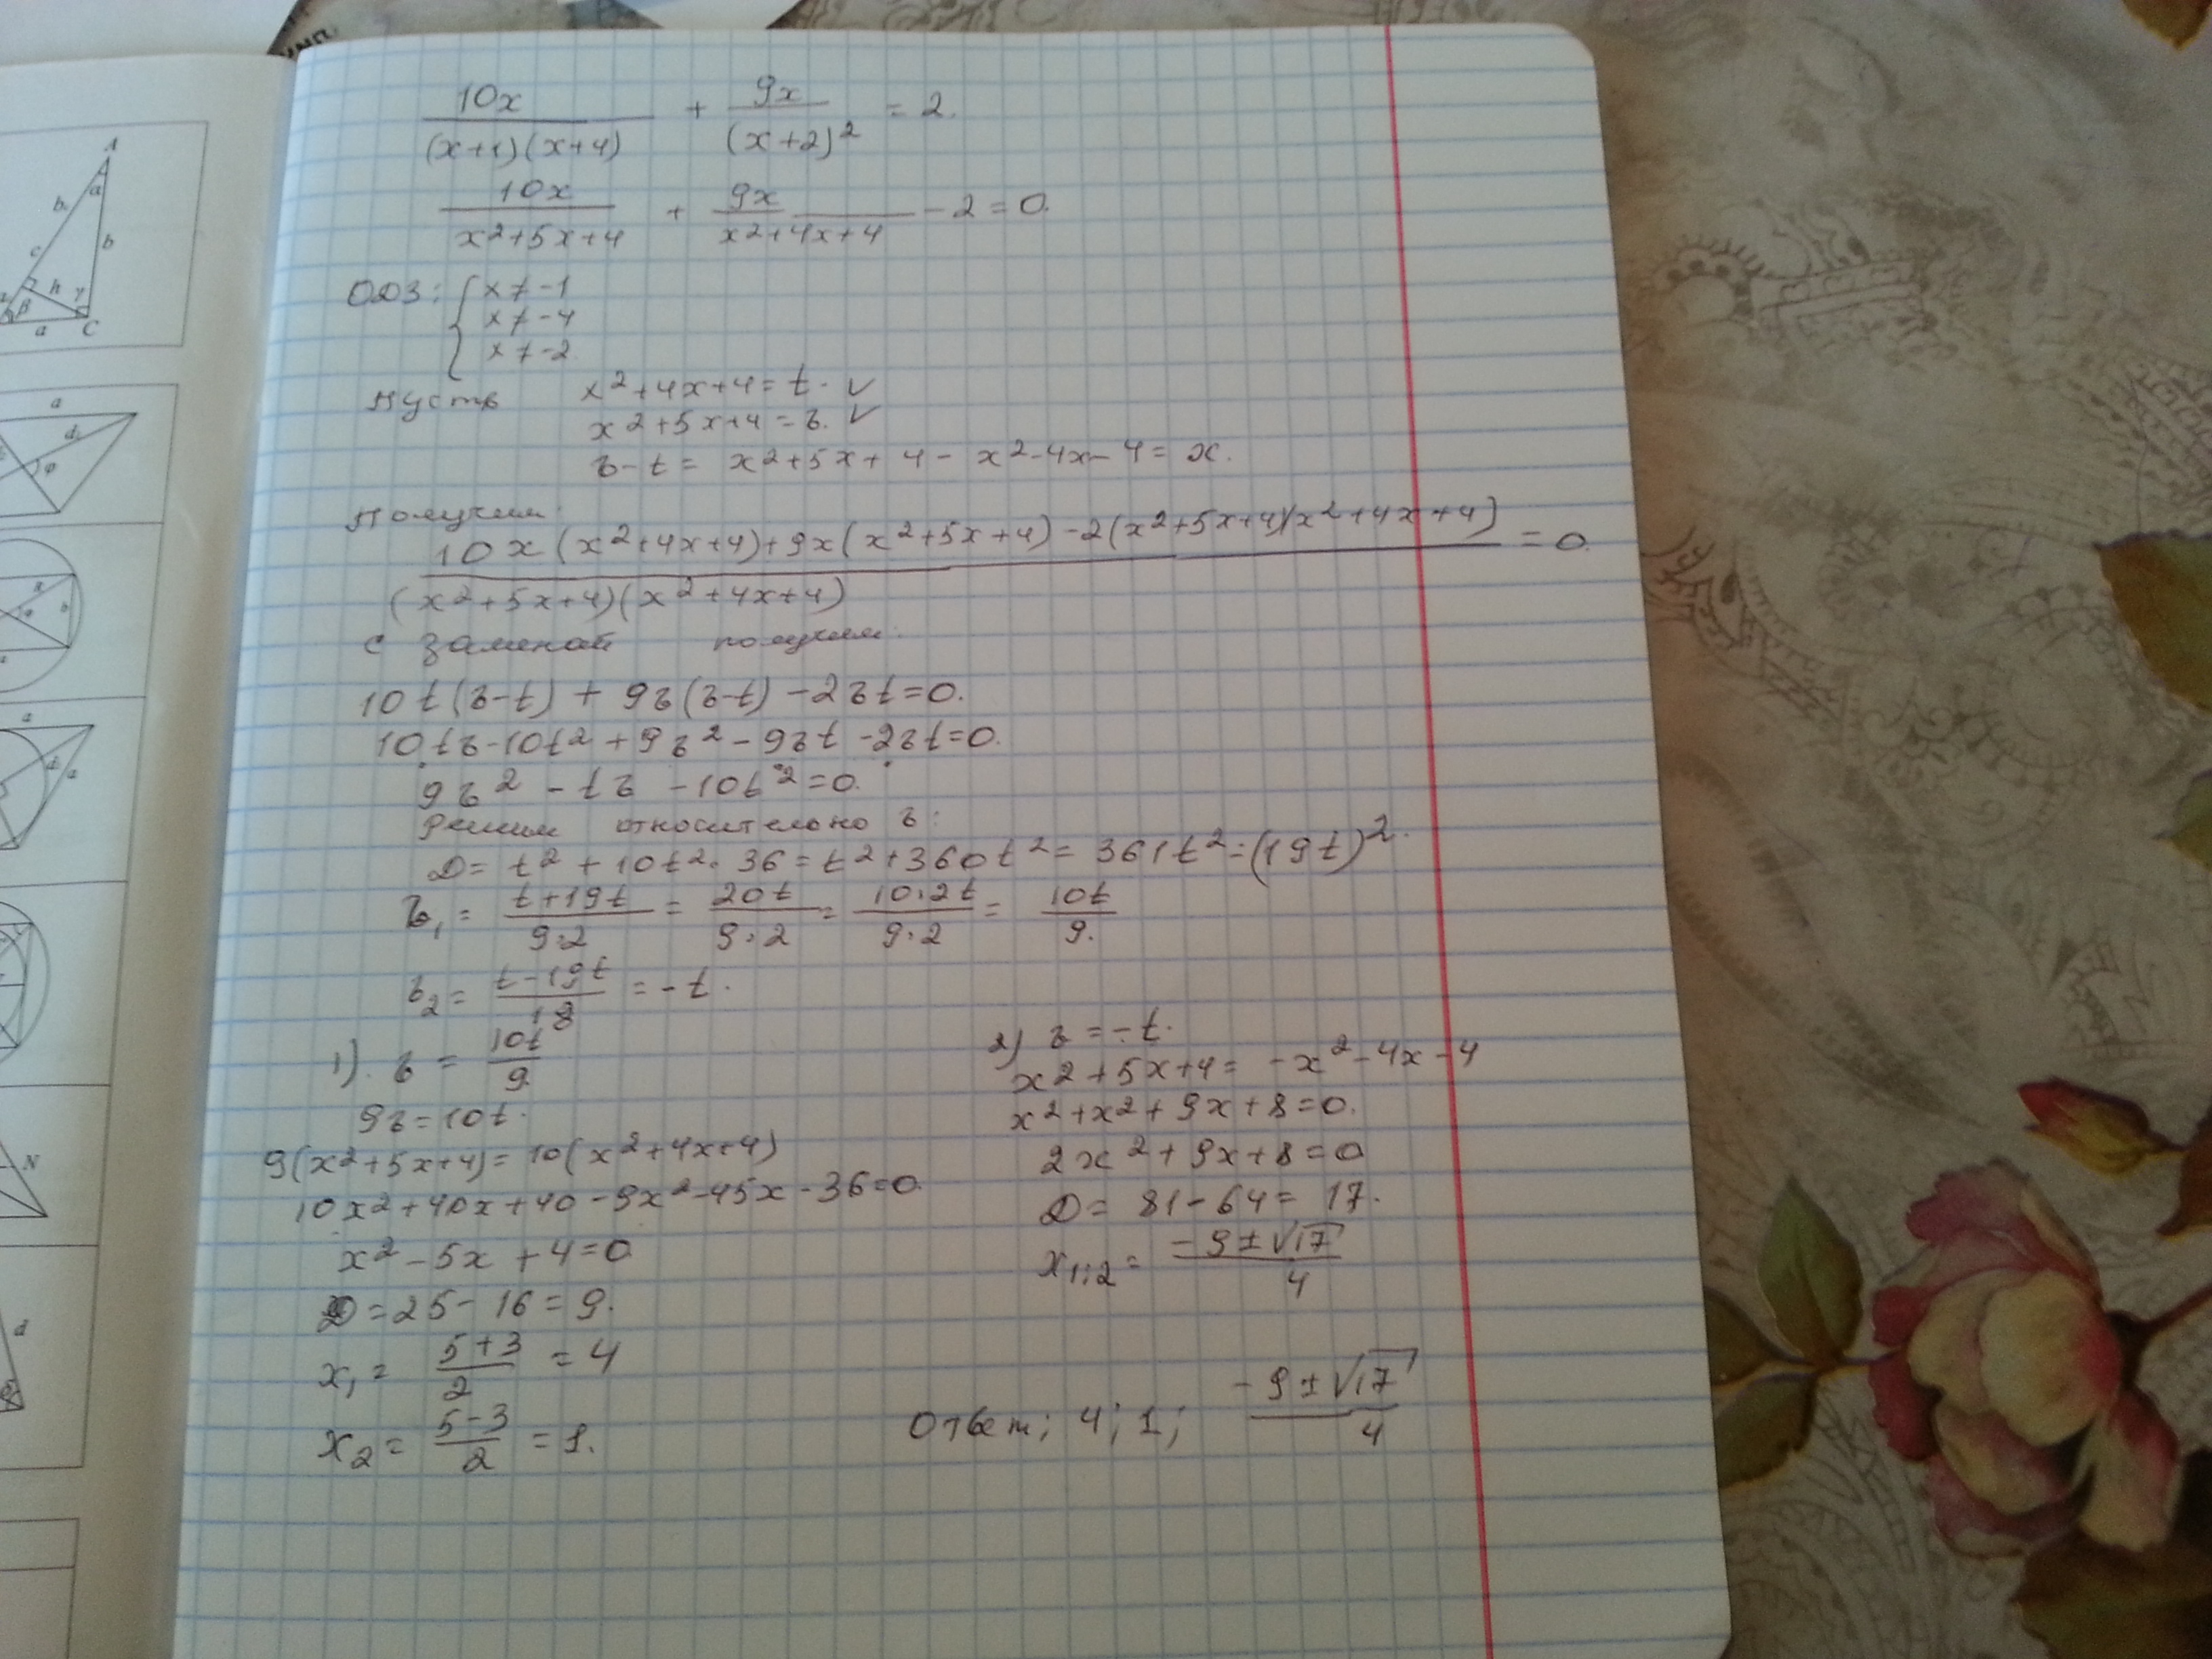 10x/((x+1)(x+4)) + 9x/(x+2)² = 2.
10x/(x²+5x+4) + 9x/(x²+4x+4) - 2 = 0.
ОДЗ: { x ≠ -1
x ≠ -4
x ≠ -2.
Пусть x²+4x+4 = t. ✓
x²+5x+4 = z. ✓
z-t = x²+5x+4 - x²-4x-4 = x.
Получим:
(10x(x²+4x+4)+9x(x²+5x+4)-2(x²+5x+4)(x²+4x+4))/((x²+5x+4)(x²+4x+4)) = 0.
С заменой получим:
10t(z-t) + 9z(z-t) - 2zt = 0.
10tz-10t²+9z²-9zt-2zt=0.
9z² - tz - 10t² = 0.
Решим относительно z:
D = t²+10t²·36 = t²+360t² = 361t² = (19t)².
z₁ = (t+19t)/(9·2) = 20t/(9·2) = (10·2t)/(9·2) = 10t/9.
z₂ = (t-19t)/18 = -t.
1). z = 10t/9
9z = 10t.
9(x²+5x+4) = 10(x²+4x+4)
10x²+40x+40-9x²-45x-36=0.
x²-5x+4=0
D=25-16=9.
x₁ = (5+3)/2 = 4
x₂ = (5-3)/2 = 1.
2) z = -t.
x²+5x+4 = -x²-4x-4
x²+x²+9x+8=0.
2x²+9x+8=0
D = 81-64 = 17.
x₁;₂ = (-9±√17)/4
Ответ; 4; 1; (-9±√17)/4
A
a
b
c
b
h
γ
β
a
C
a
d
φ
a
a
N
d